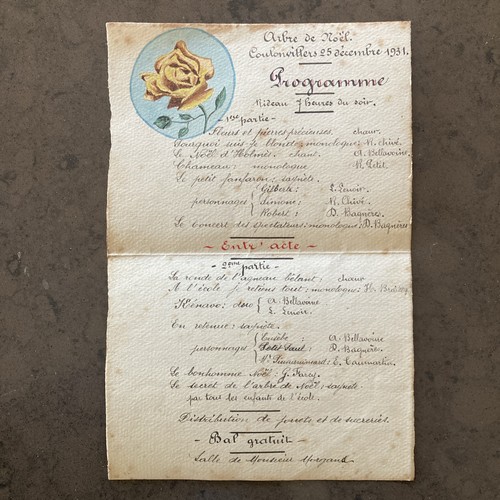 Arbre de Noël.
Coulonvillers 25 décembre 1931.
Programme
Rideau 7 heures du soir.
1ère partie
Fleurs et pierres précieuses. chœur.
Pourquoi suis-je blonde: monologue: N. Chivé.
Le Noël d'Holmès. chant. A. Bellavoine.
Chameau: monologue N. Petit.
Le petit fanfaron: saynète.
Gilberte: L. Lenoir.
personnages Simone: N. Chivé.
Robert: D. Bagnères.
Le concert des spectateurs: monologue: D. Bagnères
Entr'acte
2ème partie
La ronde de l'agneau bêlant: chœur
A l'école je retiens tout: monologue: H.
Kénavo: duo A. Bellavoine
L. Lenoir.
En retenue: saynète.
Eusèbe: A. Bellavoine
personnages Petit Paul: D. Bagnères.
E. Caumartin.
Le bonhomme Noël: G. Farcy.
Le secret de l'arbre de Noël: saynète
par tous les enfants de l'école.
Distribution de jouets et de sucreries.
Bal gratuit
Salle de Monsieur